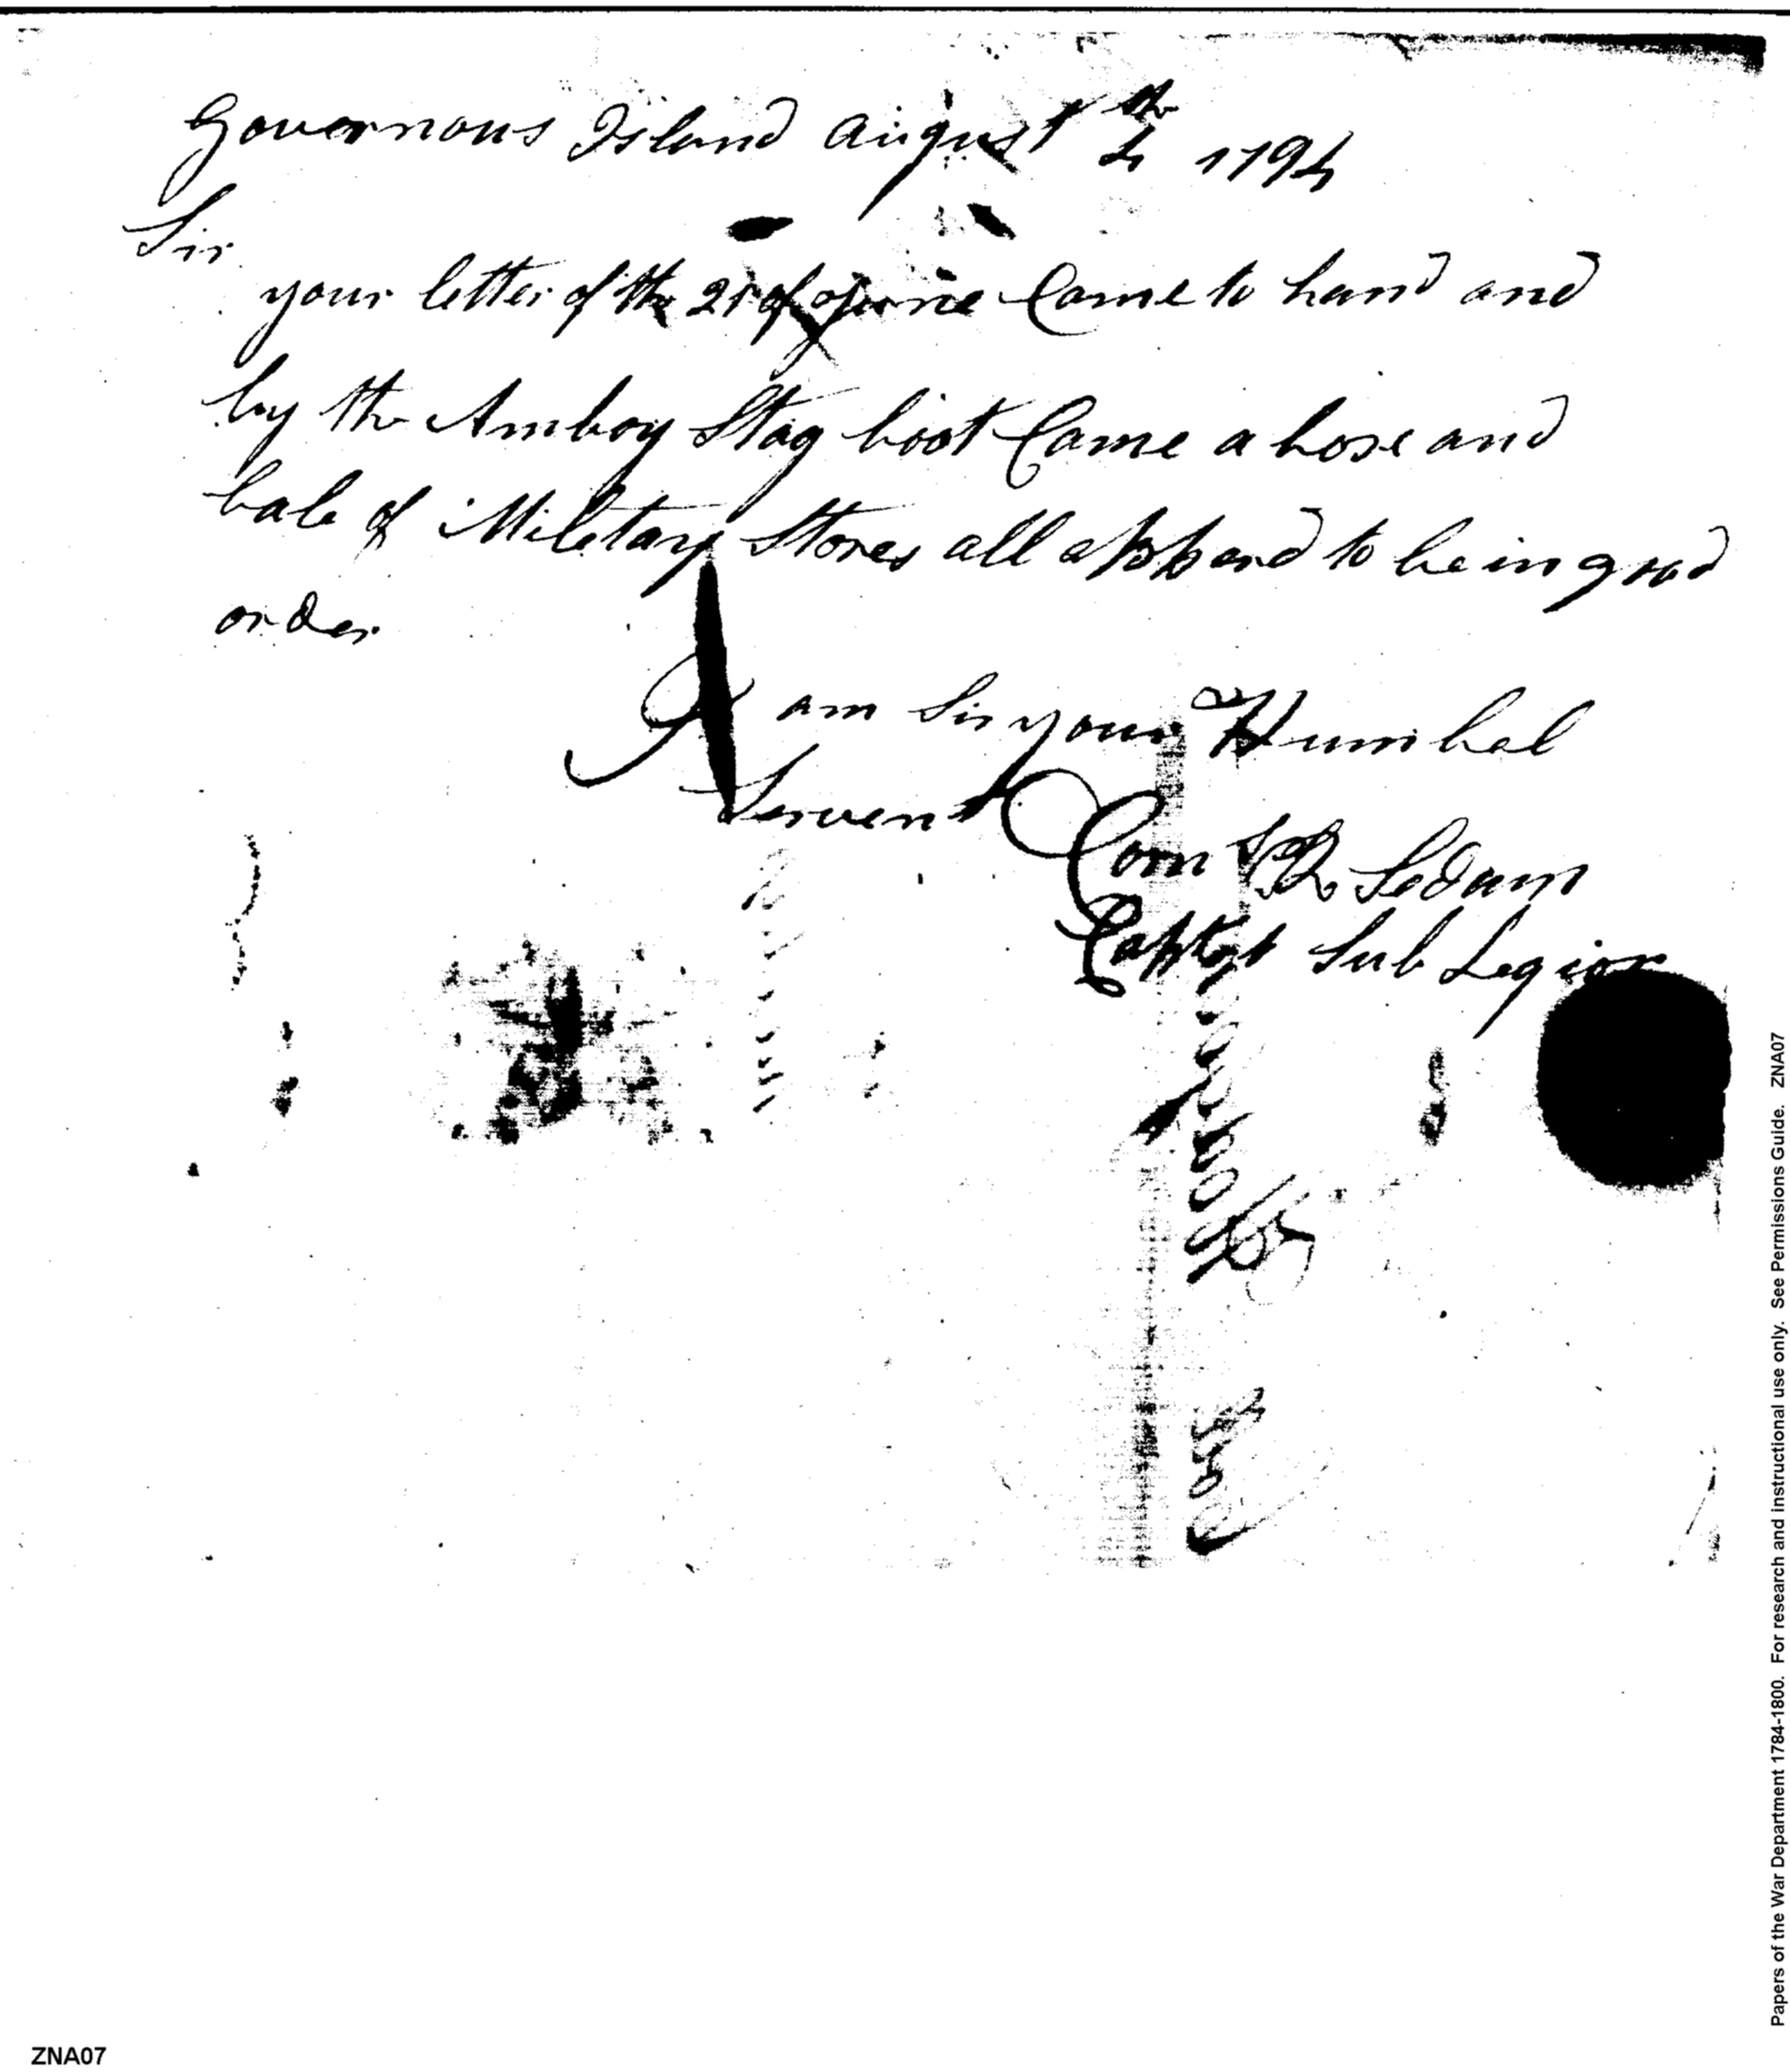 Governours Island august 4th 1794
Sir
your letter of the 21 of June Came to hand and
by the Amboy Stag boot Came a hose and
bale of Miletary Stores all appard to be in good
order
I am Sir your Humbel
Servent
Corn R Sedam
Capt 1st Sub Legion
Papers of the War Department 1784-1800. For research and instructional use only. See Permissions Guide. ZNA07
ZNA07